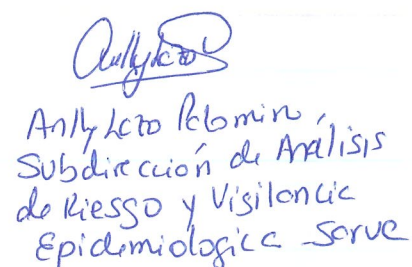 Anlly Lezo Palomin
Subdirección de Análisis
de Riesgo y Vigilancia
Epidemiologica